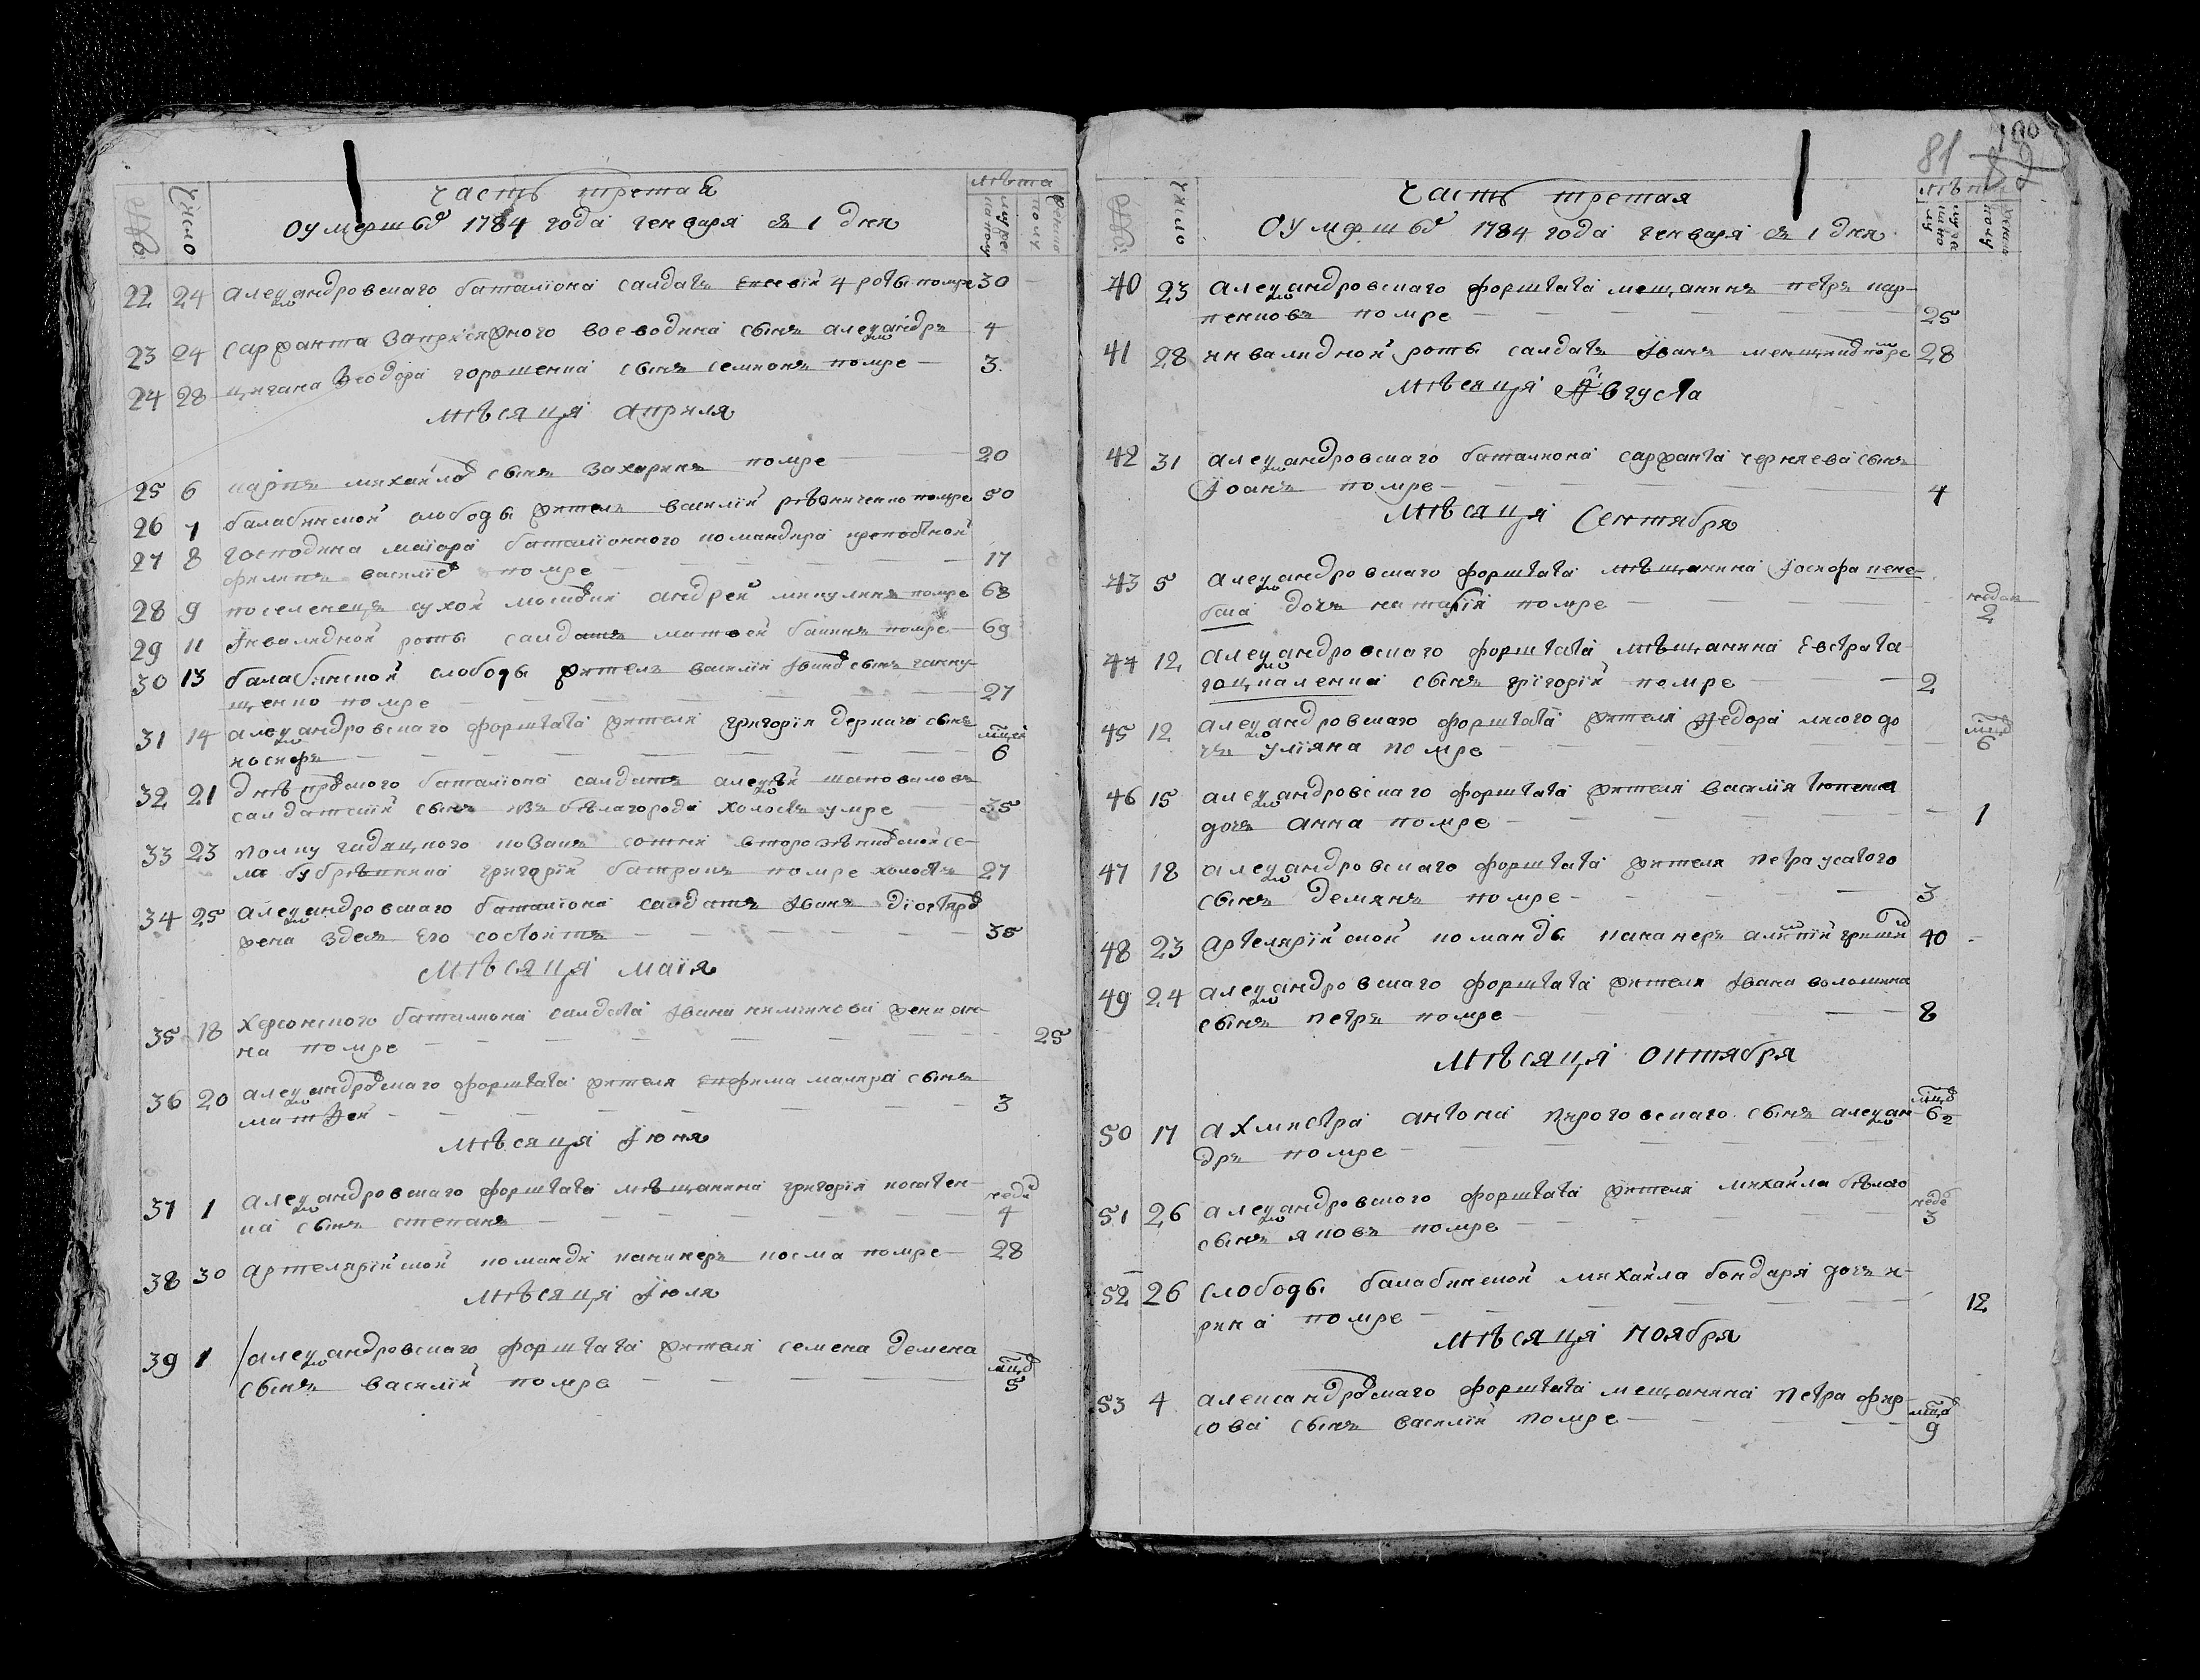 Часть третая
Лѣта
№
Число
О умершихъ 1784 года генваря съ 1 дня
мужеска полу
женска полу
22 24 Александровскаго баталіона салдатъ Евсевій 4 роты помре 30
23 24 Саржанта Запрісяжного воеводина сынъ Александръ 4
24 28 цигана Ѳеодора горошенка сынъ Семионъ помре 3
мѣсяца Априля
25 6 Михайловъ сынъ Захаринъ помре 20
26 7 балабинской слободы житель Василій рѣзниченко помре 50
27 8 господина маіора баталіонного командира крепостной
филипъ василіевъ помре 17
28 9 поселенецъ сухой московки андрей микулинъ помре 68
29 11 Інвалидной роты салдатъ матвей помре 69
30 13 балабинской слободы житель василій Івановъ сынъ ганну-
щенко помре 27
31 14 Александровскаго форштата жителя григорія дернага сынъ
иосифъ мѣсяцей 6
32 21 днѣпровского баталіона салдатъ алексѣй шаповаловъ
салдатскій сынъ изъ бѣлагорода холостъ умре 35
33 23 полку гадяцкого
григорій помре холостъ 27
34 25 Александровскаго баталіона салдатъ Іванъ
жена здесь Его состоитъ 35
мѣсяца Маія
35 18 Херсонского баталиона салдата Івана климкова жена ан-
на помре 25
36 20 Александровскаго форштата жителя Ефима маляра сынъ
матѳей 3
мѣсяца Іюня
37 1 Александровскаго форштата мѣщанина григорія костен-
ка сынъ степанъ недѣль 4
38 30 Артелярійской команди канинеръ косма помре 28
мѣсяца Іюля
39 1 Александровскаго форштата жителя семена демена
сынъ василій помре мѣсяцовъ 5
81
100
82
Часть третая
Лѣта
№
Число
О умершихъ 1784 года генваря съ 1 дня
мужеска полу
женска полу
40 23 Александровскаго форштата мещанинъ петръ кар-
пенковъ помре 25
41 28 инвалидной роты салдатъ Іванъ помре 28
мѣсяца Августа
42 31 Александровскаго баталиона саржанта черняева сынъ
Іоанъ помре 4
мѣсяца Сентября
43 5 Александровскаго форштата мѣщанина Іосифа
дочь наталія помре недель 2
44 12 Александровскаго форштата мѣщанина Евстрата
гоцкаленка сынъ григорій помре 2
45 12 Александровскаго форштата жителя Ѳедора лисого до
чь улияна помре мѣсяцовъ 6
46 15 Александровскаго форштата жителя василія
дочь анна помре 1
47 18 Александровскаго форштата жителя петра усатого
сынъ демянъ помре 3
48 23 Артелярійской команды каканеръ 40
49 24 Александровскаго форштата жителя Івана волошина
сынъ петръ помре 8
мѣсяца Октября
50 17 ахмистра антона пироговскаго сынъ алексан
дръ помре мѣсяцовъ 6
51 26 Александровского форштата жителя михайла бѣлого
сынъ яковъ помре недель 3
52 26 Слободы балабинской михайла бондаря дочь и-
рина помре 12
мѣсяца Ноября
53 4 Александровскаго форштата мещанина петра фир
сова сынъ василій помре мѣсяцовъ 9